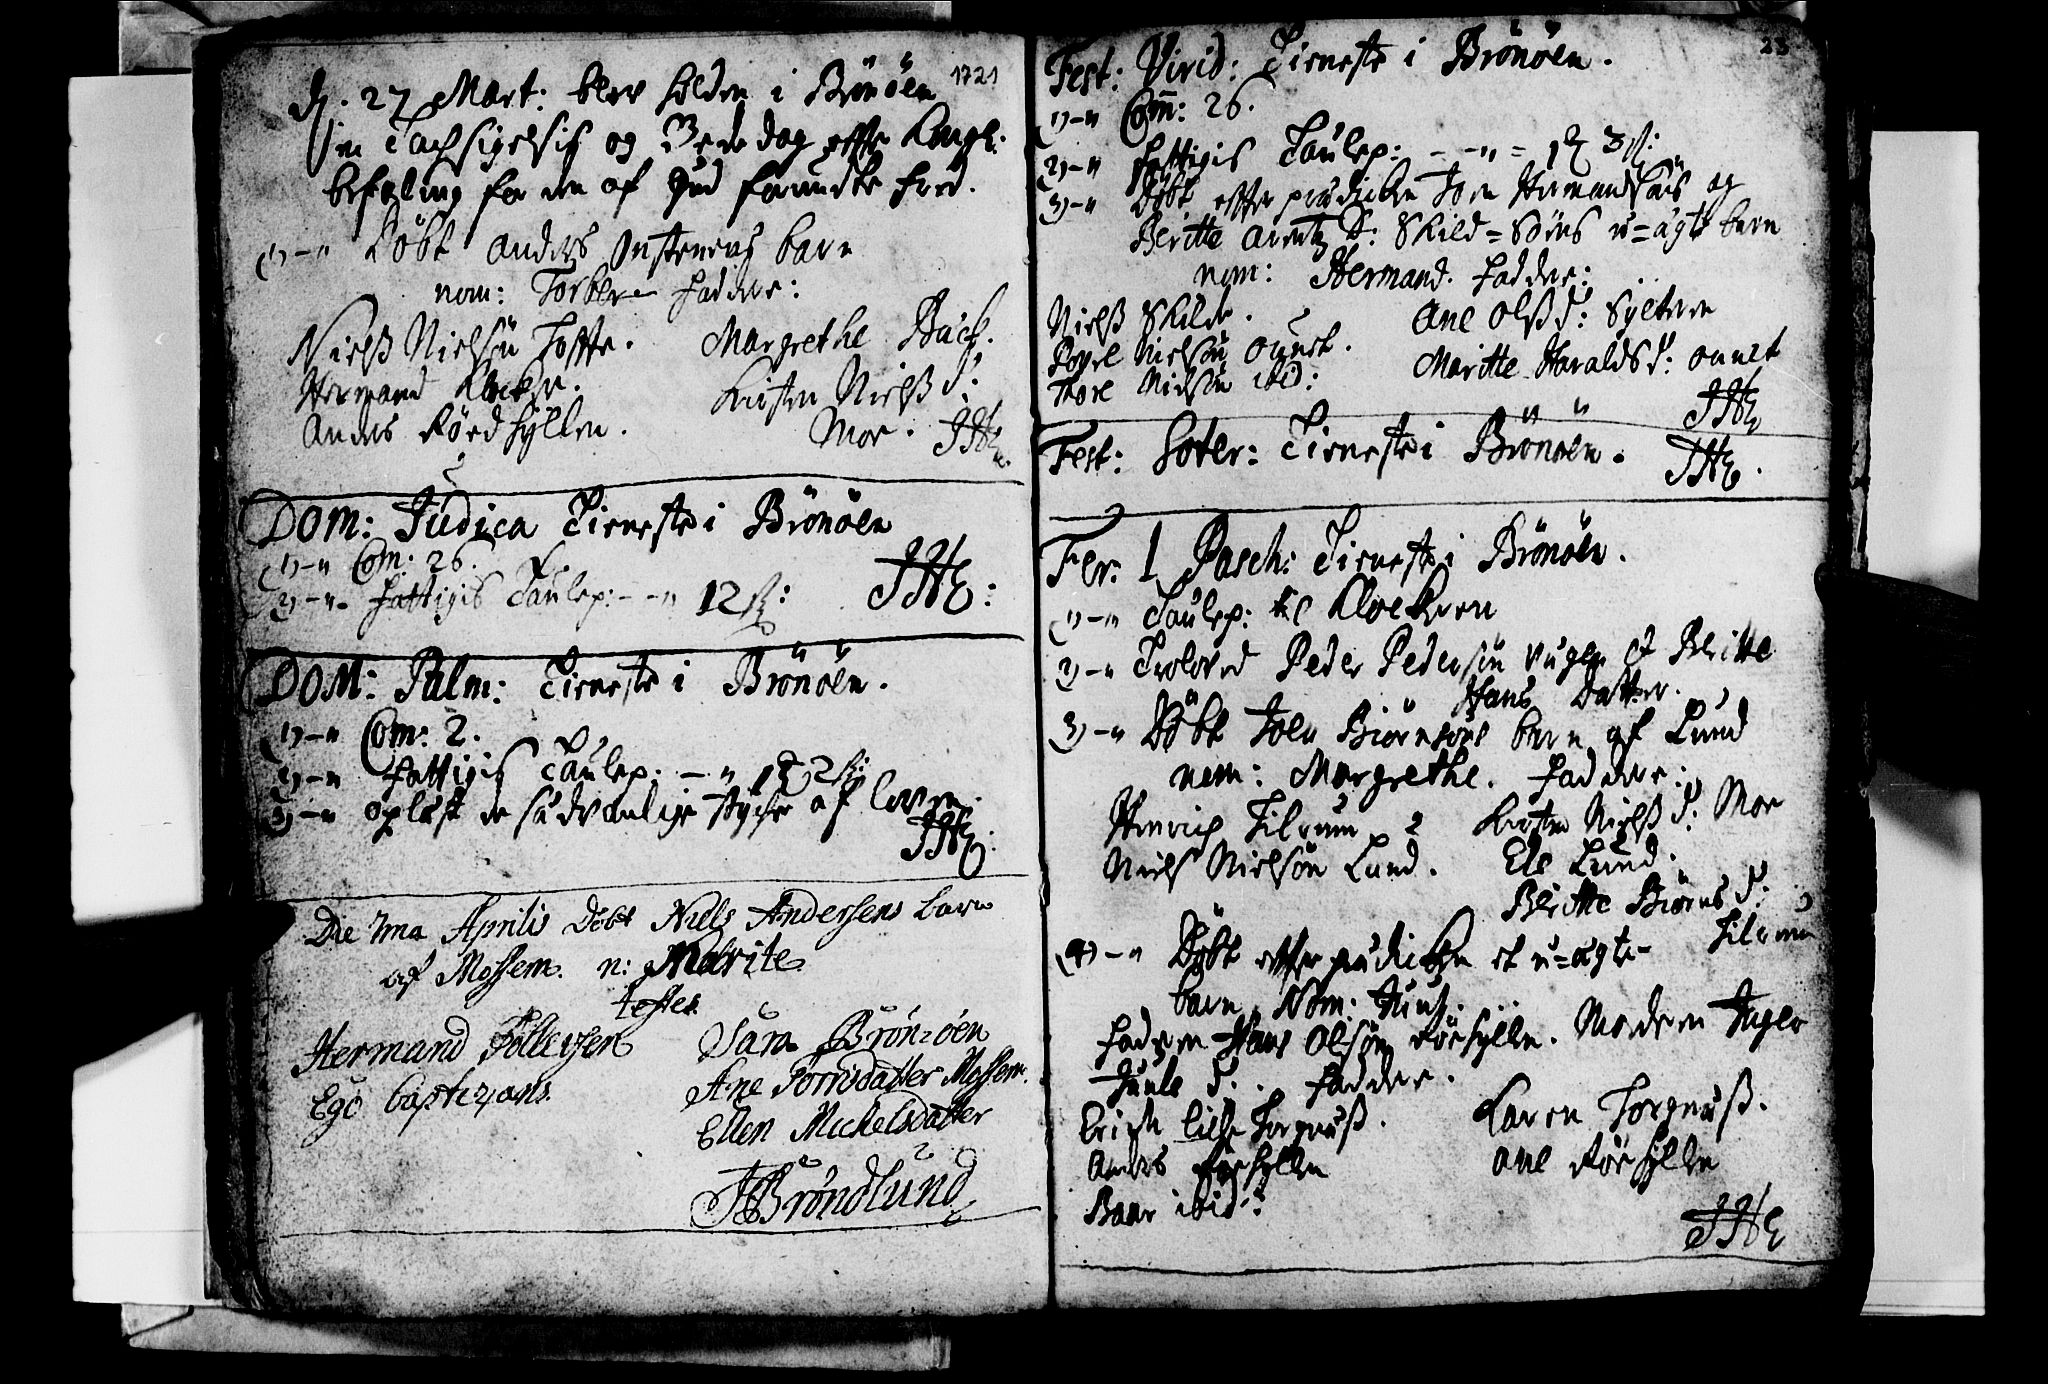 1721
d. 27 Mart: blev holden i Brönöen
en Tachsigelsis og Bededag efter Kongl:
befaling for den af Gud forundte fred.
(1)-" Döbt Anders Instenens barn
nom: Torber Faddere:
Niels Nielsön Tofte. Margrethe Buch.
Hermand Klocker. Kirsten Nielß D:
Anders Rörhyllen. Moe. JHE
DOM: Judica Tieneste i Brönöen
(1)-" Com: 26.
(2)-"- Fattigis Taulep: - -" 12 ß: JHE:
DOM: Palm: Tieneste i Brönöen.
(1)-" Com: 2.
2)-" Fattigis Taulep: -" 1 2 ß:
3)-" oplæst de sædvanlige stycher af loven.
JHE:
Die 7ma Aprilis Döbt Niels Andersens barn
af Mossem. n: Marite
testes.
Hermand Tollefsen Sara Brönöen
Ego baptizans. Ane Torrisdatter Mossem.
Ellen Mickelsdatter
JBröndlund
23
Fest: Virid: Tieneste i Brönöen.
(1)-" Com: 26.
2)-" Fattigis Taulep: - -" = 1 3 ß:
3)-" Döbt efter prædicken Joen Hermandsöns og
Beritte Arentz D: Skild=Söens u=ægte barn
nom: Hermand. Faddere:
Nielß Skilde. Ane Olß D: Sylteren
Povel Nielsön Omnet. Maritte Haralds D: Omnet
Tore Nielsön ibid: JHE
Fest: Soter: Tieneste i Brönöen. JHE.
Fer: 1 Pasch: Tieneste i Brönöen.
(1)-" Taulep: til Klockeren
2)-" Troloved Peder Pedersön Vugen et Beritte
Hans Datter.
3)-" Döbt Joen Biörnsöns barn af Lund
nom: Margrethe. Faddere:
Hinrich Tilrem Kirsten Nielß D: Moe
Niels Nielsön Lund. Ele Lund.
Beritte Biörns D:
Tilrem
(4)-" Döbt efter prædicken et u=ægte-
barn. Nom: Juul.
Faderen Hans Olsön Rörhyllen. Moderen Inger
Juuls D. Faddere.
Erich Lille Torgnuß. Karen Torgnuß.
Anders Rörhyllen Ane Rörhyllen
Baar ibid:
JHE